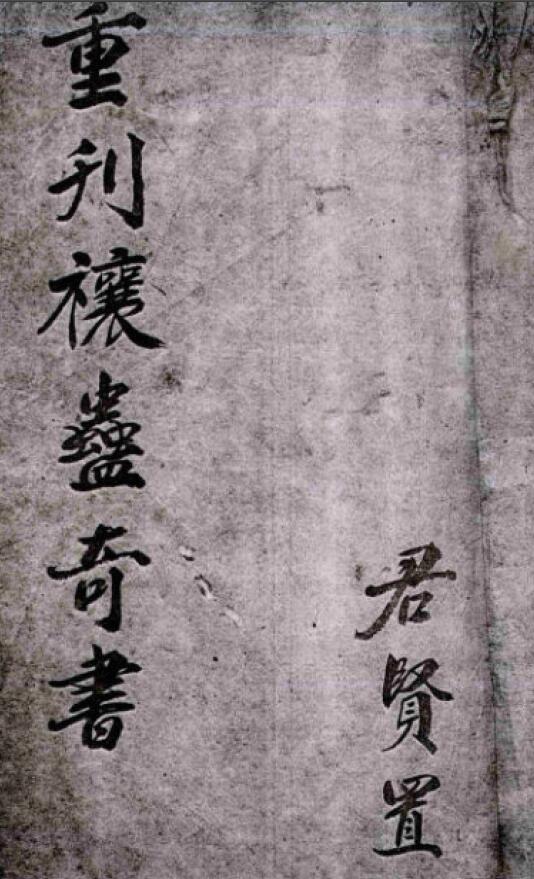 君賢置
重刋禳蠱奇書